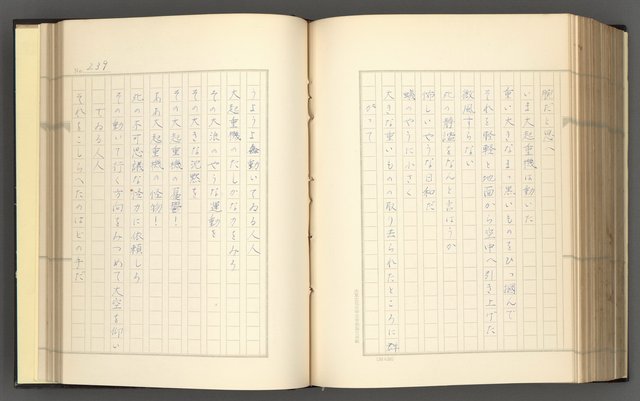 腕だと思へ
いま大起重機は動いた
重い大きなまつ黒いものをひつ掴んで
それを軽軽と地面から空中へ引き上げた
微風すらない
此の静謐をなんと言はうか
怖しいやうな日和だ
蟻のやうに小さく
大きな重いものの取り去られたところに群
がつて
うようよ蠢動いてゐる人人
大起重機のたしかな力をみろ
その大浪のやうな運動を
その大きな沈黙を
その大起重機の憂鬱!
ああ大起重機の怪物!
此の不可思議な怪力に依頼しろ
その動いて行く方向をみつめて大空を仰い
でゐる人人
それをこしらへたのはどの手だ
No. 239